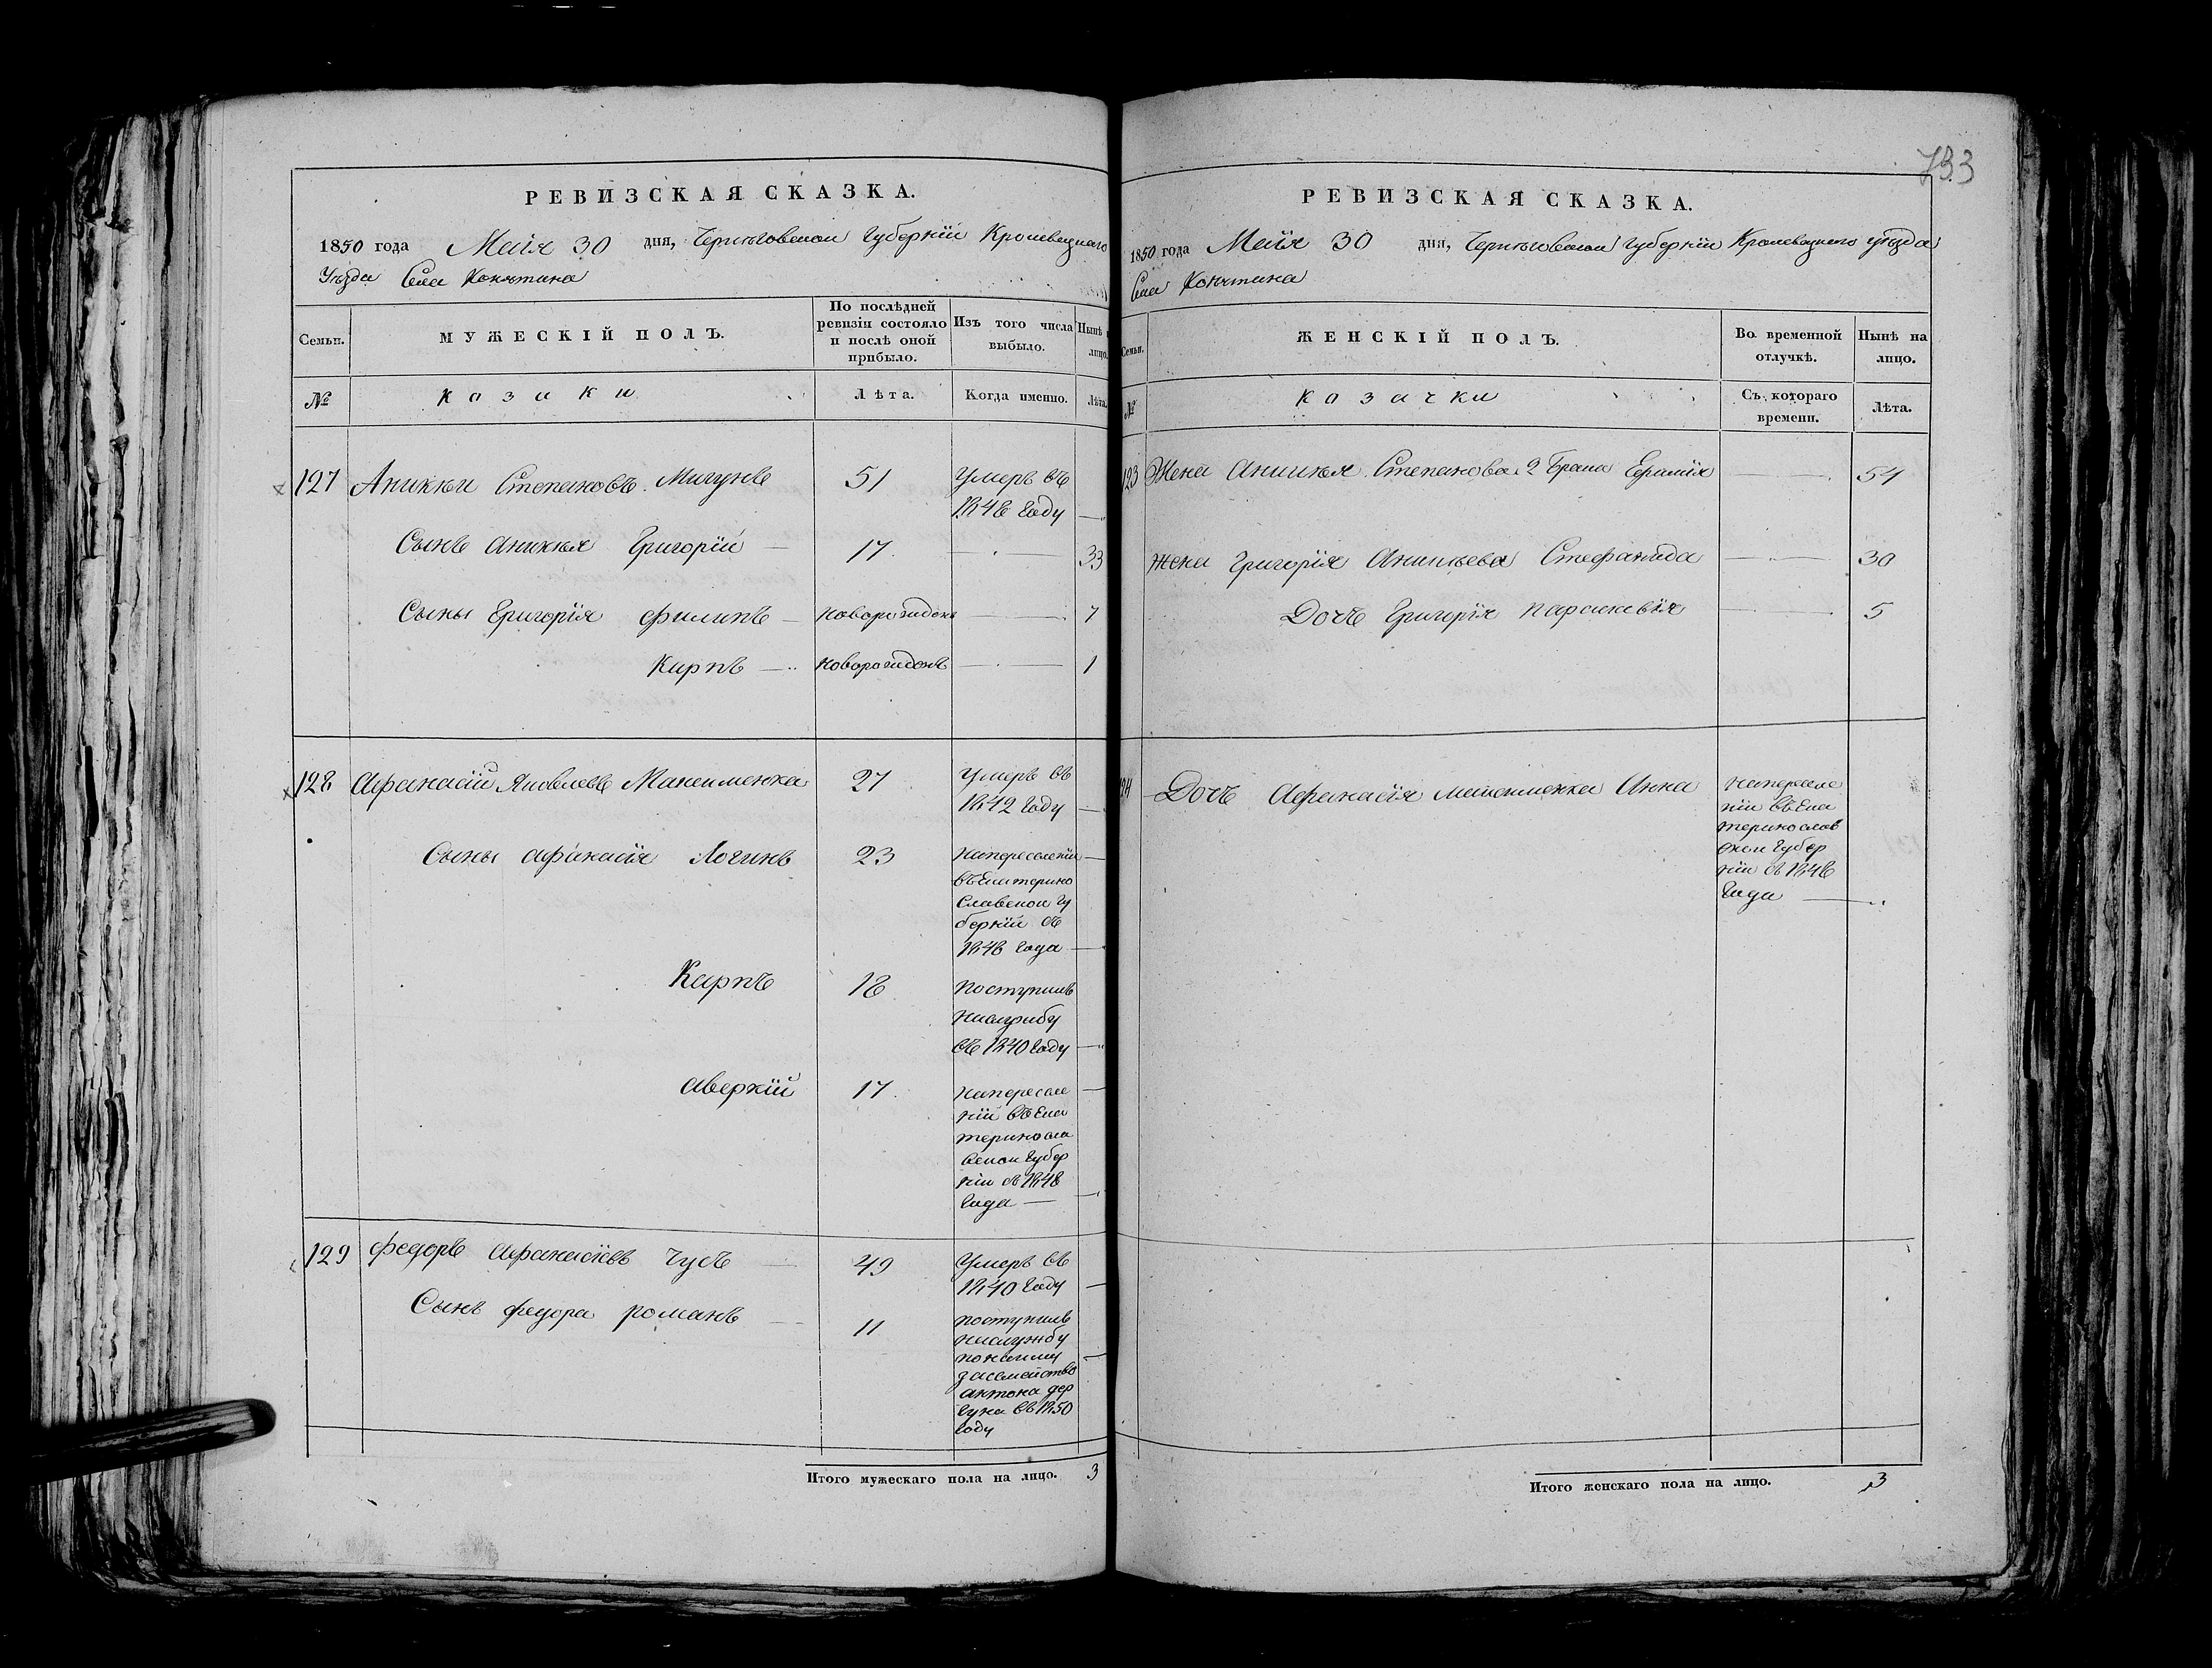 733
РЕВИЗСКАЯ СКАЗКА.
1850 года Маія 30 дня, Черниговской Губерніи Кролевецкаго
Уѣзда Села Конятина
Семьи.
МУЖЕСКІЙ ПОЛЪ.
По послѣдней ревизіи состояло и послѣ оной прибыло.
Изъ того числа выбыло.
Нынѣ на лицо.
№
козаки
Лѣта.
Когда именно.
Лѣта.
127 Аникѣй Степановъ Мигунъ 51 Умеръ въ
1848 Году
Сынъ Аникѣя Григорій 17 33
Сыны Григорія Филипъ новорожденъ 7
Карпъ новорожденъ 1
128 Афанасій Яковлевъ Максименко 27 Умеръ въ
1842 Году
Сыны Афанасія Логинъ 23 на переселеніи
въ Екатерино
Славской Гу
берніи съ
1848 Года
Карпъ 18 поступилъ
на службу
въ 1840 Году
Аверкій 17 на переселе
ніи въ Ека
теринослa
вской Губер
ніи съ 1848
Года
129 Федоръ Афанасіевъ Чубъ 49 Умеръ въ
1840 Году
Сынъ Федора Романъ 11 поступилъ
на службу
по найму
за семейство
Антона
въ 1850
Году
Итого мужескаго пола на лицо. 3
РЕВИЗСКАЯ СКАЗКА.
1850 года Маія 30 дня, Черниговской Губерніи Кролевецкаго уѣзда
Села Конятина
Семьи.
ЖЕНСКІЙ ПОЛЪ.
Во временной отлучкѣ.
Нынѣ на лицо.
№
козачки
Съ котораго времени.
Лѣта.
123 Жена Аникѣя Степанова 2 Брака 54
Жена Григорія Аникѣева Стефанида 30
Дочь Григорія Параскевія 5
124 Дочь Афанасія Максименка Анна на переселе
ніи въ Ека
теринослав
ской Губер
ніи съ 1848
Года
Итого женскаго пола на лицо. 3